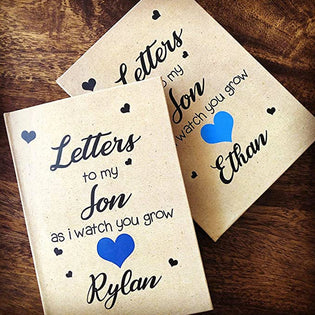 Letters
to my
Son
as i watch you grow
Rylan
Letters
to my
Son
watch you grow
Ethan